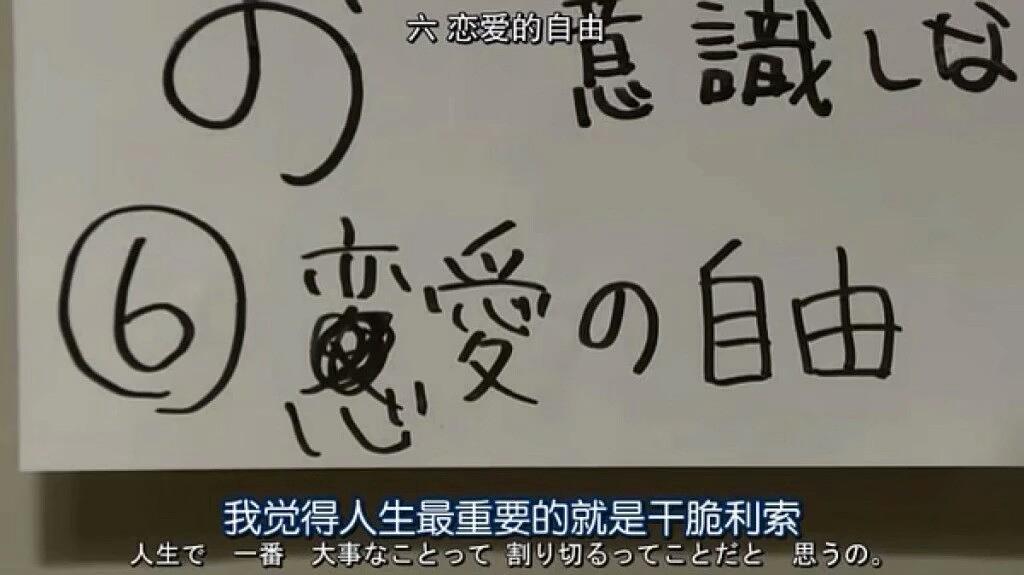 六 恋爱的自由
の 意識しな
⑥ 恋愛の自由
我觉得人生最重要的就是干脆利索
人生で 一番 大事なことって 割り切るってことだと 思うの。